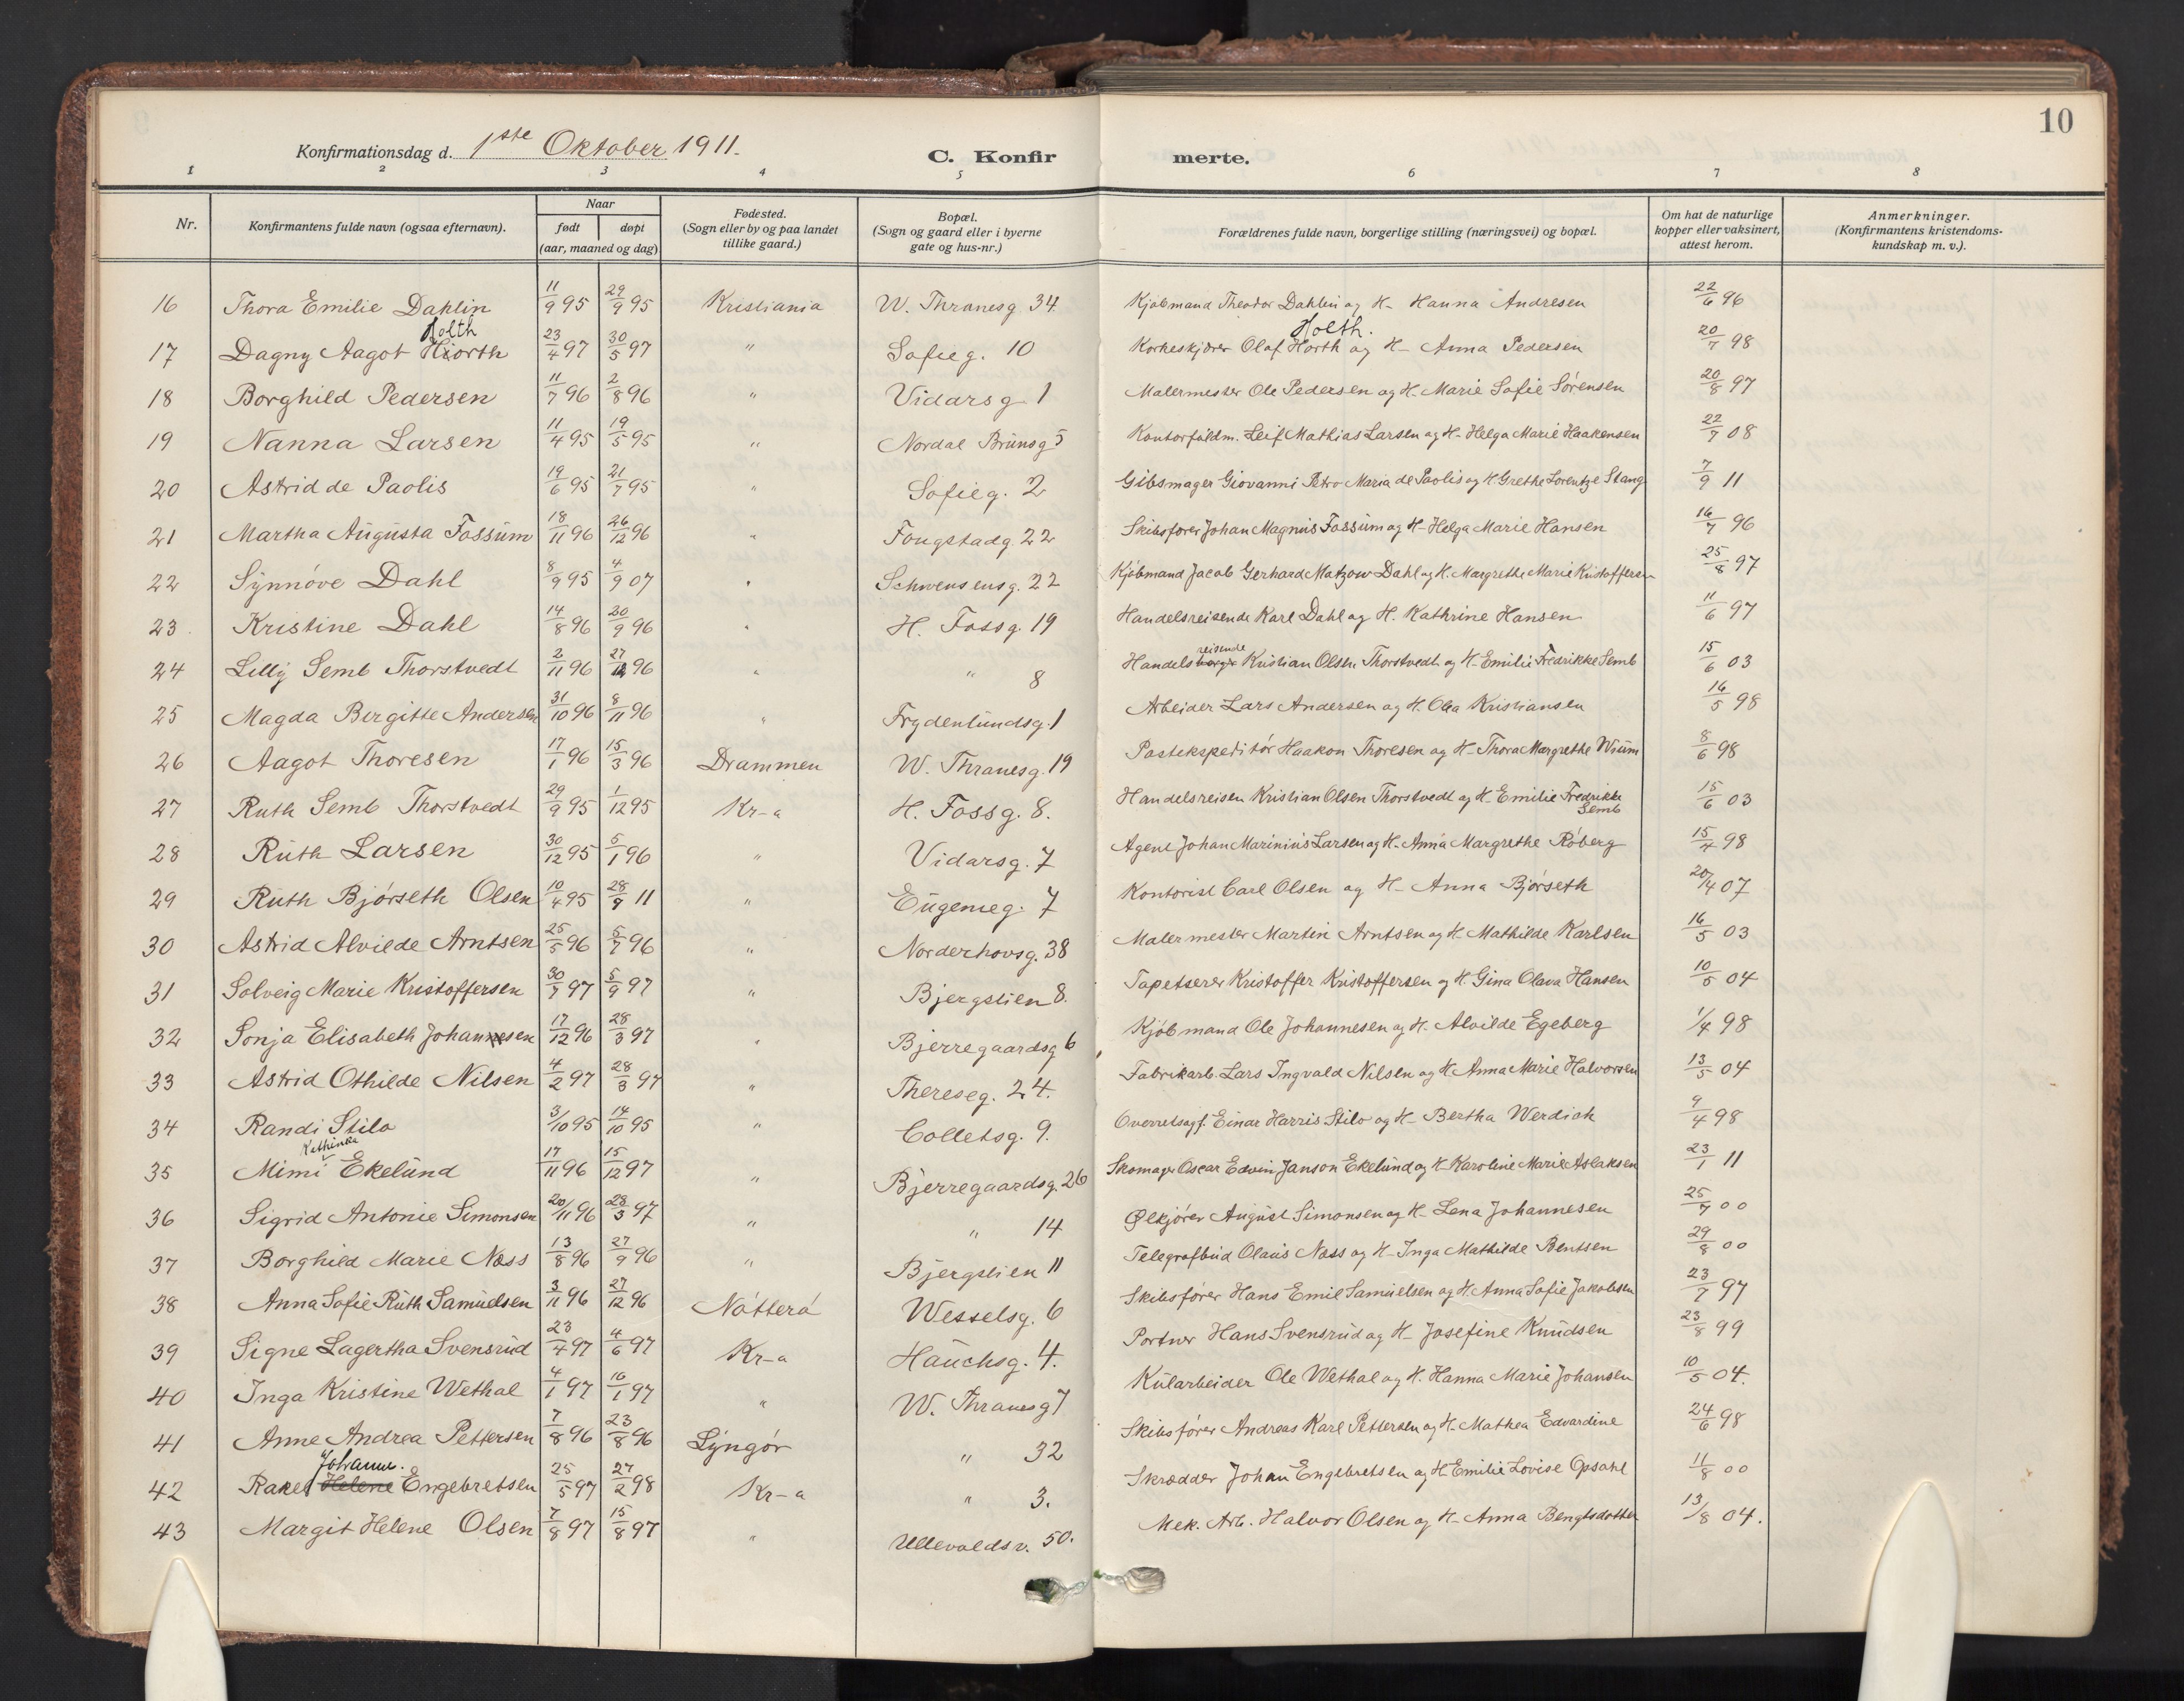 10
Konfirmationsdag d. 1ste Oktober 1911.
C. Konfirmerte.
1 2 3 4 5 6 7 8
Nr. Konfirmantens fulde navn (ogsaa efternavn). Naar født døpt (aar, maaned og dag) Fødested. (Sogn eller by og paa landet tillike gaard.) Bopæl. (Sogn og gaard eller i byerne gate og hus-nr.) Forældrenes fulde navn, borgerlige stilling (næringsvei) og bopæl. Om hat de naturlige kopper eller vaksinert, attest herom. Anmerkninger. (Konfirmantens kristendomskundskap m. v.).
16 Thora Emilie Dahlin 11/9 95 29/9 95 Kristiania W. Thranesg 34 Kjøbmand Theodor Dahlin og H- Hanna Andresen 22/6 96
Holth Holth.
17 Dagny Aagot Hiorth 23/4 97 30/5 97 " Sofieg. 10 Korkeskjærer Olaf Horth og H- Anna Pedersen 20/7 98
18 Borghild Pedersen 11/7 96 2/8 96 " Vidarsg 1 Malermester Ole Pedersen og H- Marie Sofie Sørensen 20/8 97
19 Nanna Larsen 11/4 95 19/5 95 " Nordal Brunsg 5 Kontorfuldm. Leif Mathias Larsen og H- Helga Marie Haakensen 22/7 08
20 Astrid de Paolis 19/6 95 21/7 95 " Sofieg. 2 Gibsmager Giovanni Petro Maria de Paolis og H Grethe Lorentze Stang 7/9 11
21 Martha Augusta Fossum 18/11 96 26/12 96 " Fougstadg. 22 Skibsfører Johan Magnus Fossum og H- Helga Marie Hansen 16/7 96
22 Synnøve Dahl 8/9 95 4/9 07 " Schwensensg. 22 Kjøbmand Jacob Gerhard Matzow Dahl og H. Margrethe Marie Kristoffersen 25/8 97
23. Kristine Dahl 14/8 96 20/9 96 " H. Fossg. 19 Handelsreisende Karl Dahl og H. Kathrine Hansen 11/6 97
reisende
24 Lilly Semb Thorstvedt 2/11 96 27/12 96 " " 8 Handelsborger Kristian Olsen Thorstvedt og H- Emilie Fredrikke Semb 15/6 03
25 Magda Bergitte Andersen 31/10 96 8/11 96 " Frydenlundsg. 1 Arbeider Lars Andersen og H. Olea Kristiansen 16/5 98
26 Aagot Thoresen 17/1 96 15/3 96 Drammen W. Thranesg. 19 Postekspeditør Haakon Thoresen og H- Thora Margrethe Wium 8/6 98
27 Ruth Semb Thorstvedt 29/9 95 1/12 95 Kr-a H. Fossg. 8. Handelsreisen Kristian Olsen Thorstvedt og H- Emilie Fredrikke Semb 15/6 03
28 Ruth Larsen 30/12 95 5/1 96 " Vidarsg. 7 Agent Johan Marinius Larsen og H- Anna Margrethe Røberg 15/7 98
29 Ruth Bjørseth Olsen 10/4 95 28/9 11 " Eugenieg. 7 Kontorist Carl Olsen og H- Anna Bjørseth 20/4 07
30 Astrid Alvilde Arntsen 25/5 96 5/7 96 " Norderhovsg. 38 Malermester Martin Arntsen og H- Mathilde Karlsen 16/5 03
31 Solveig Marie Kristoffersen 30/7 97 5/9 97 " Bjergslien 8. Tapetserer Kristoffer Kristoffersen og H. Gina Olava Hansen 10/5 04
32 Sonja Elisabeth Johannesen 17/12 96 28/3 97 " Bjerregaardsg 6 Kjøbmand Ole Johannesen og H. Alvilde Egeberg 1/4 98
33 Astrid Othilde Nilsen 4/2 97 28/3 97 " Thereseg. 24. Fabrikarb. Lars Ingvald Nilsen og H. Anna Marie Halvorsen 13/5 04
34 Randi Stilo 3/10 95 14/10 95 " Colletsg. 9. Overretsagf. Einar Harris Stilo og H- Bertha Werdich 9/4 98
Kathinka
35 Mimi Ekelund 17/11 96 15/12 97 " Bjerregaardsg. 26 Skomager Oscar Edvin Janson Ekelund og H Karoline Marie Aslaksen 23/1 11
36 Sigrid Antonie Simonsen 20/11 96 28/3 97 " " 14 Ølkjører August Simonsen og H- Lena Johannesen 25/7 00
37 Borghild Marie Næss 13/8 96 27/9 96 " Bjergslien 11 Telegrafbud Olaus Næss og H- Inga Mathilde Bentsen 29/8 00
38 Anna Sofie Ruth Samuelsen 3/11 96 27/12 96 Nøtterø Wesselsg. 6 Skibsfører Hans Emil Samuelsen og H. Anna Sofie Jakobsen 23/7 97
39 Signe Lagertha Svensrud 23/4 97 4/6 97 Kr-a Hauchsg. 4. Portner Hans Svensrud og H- Josefine Knudsen 23/8 99
40 Inga Kristine Wethal 4/1 97 16/1 97 " W. Thranesg 7 Kularbeider Ole Wethal og H. Hanna Marie Johansen 10/5 04.
41 Anne Andrea Pettersen 7/8 96 23/8 96 Lyngør " 32 Skibsfører Andreas Karl Pettersen og H- Mathea Edvardine 24/6 98
Johanne.
42 Rakel Helene Engebretsen 25/5 97 27/2 98 Kr-a " 3. Skrædder Johan Engebretsen og H Emilie Lovise Opsahl 11/8 00
43 Margit Helene Olsen 7/8 97 15/8 97 " Ullevoldsv. 50. Mek. Arb. Halvor Olsen og H- Anna Bengtsdotter 13/8 04.